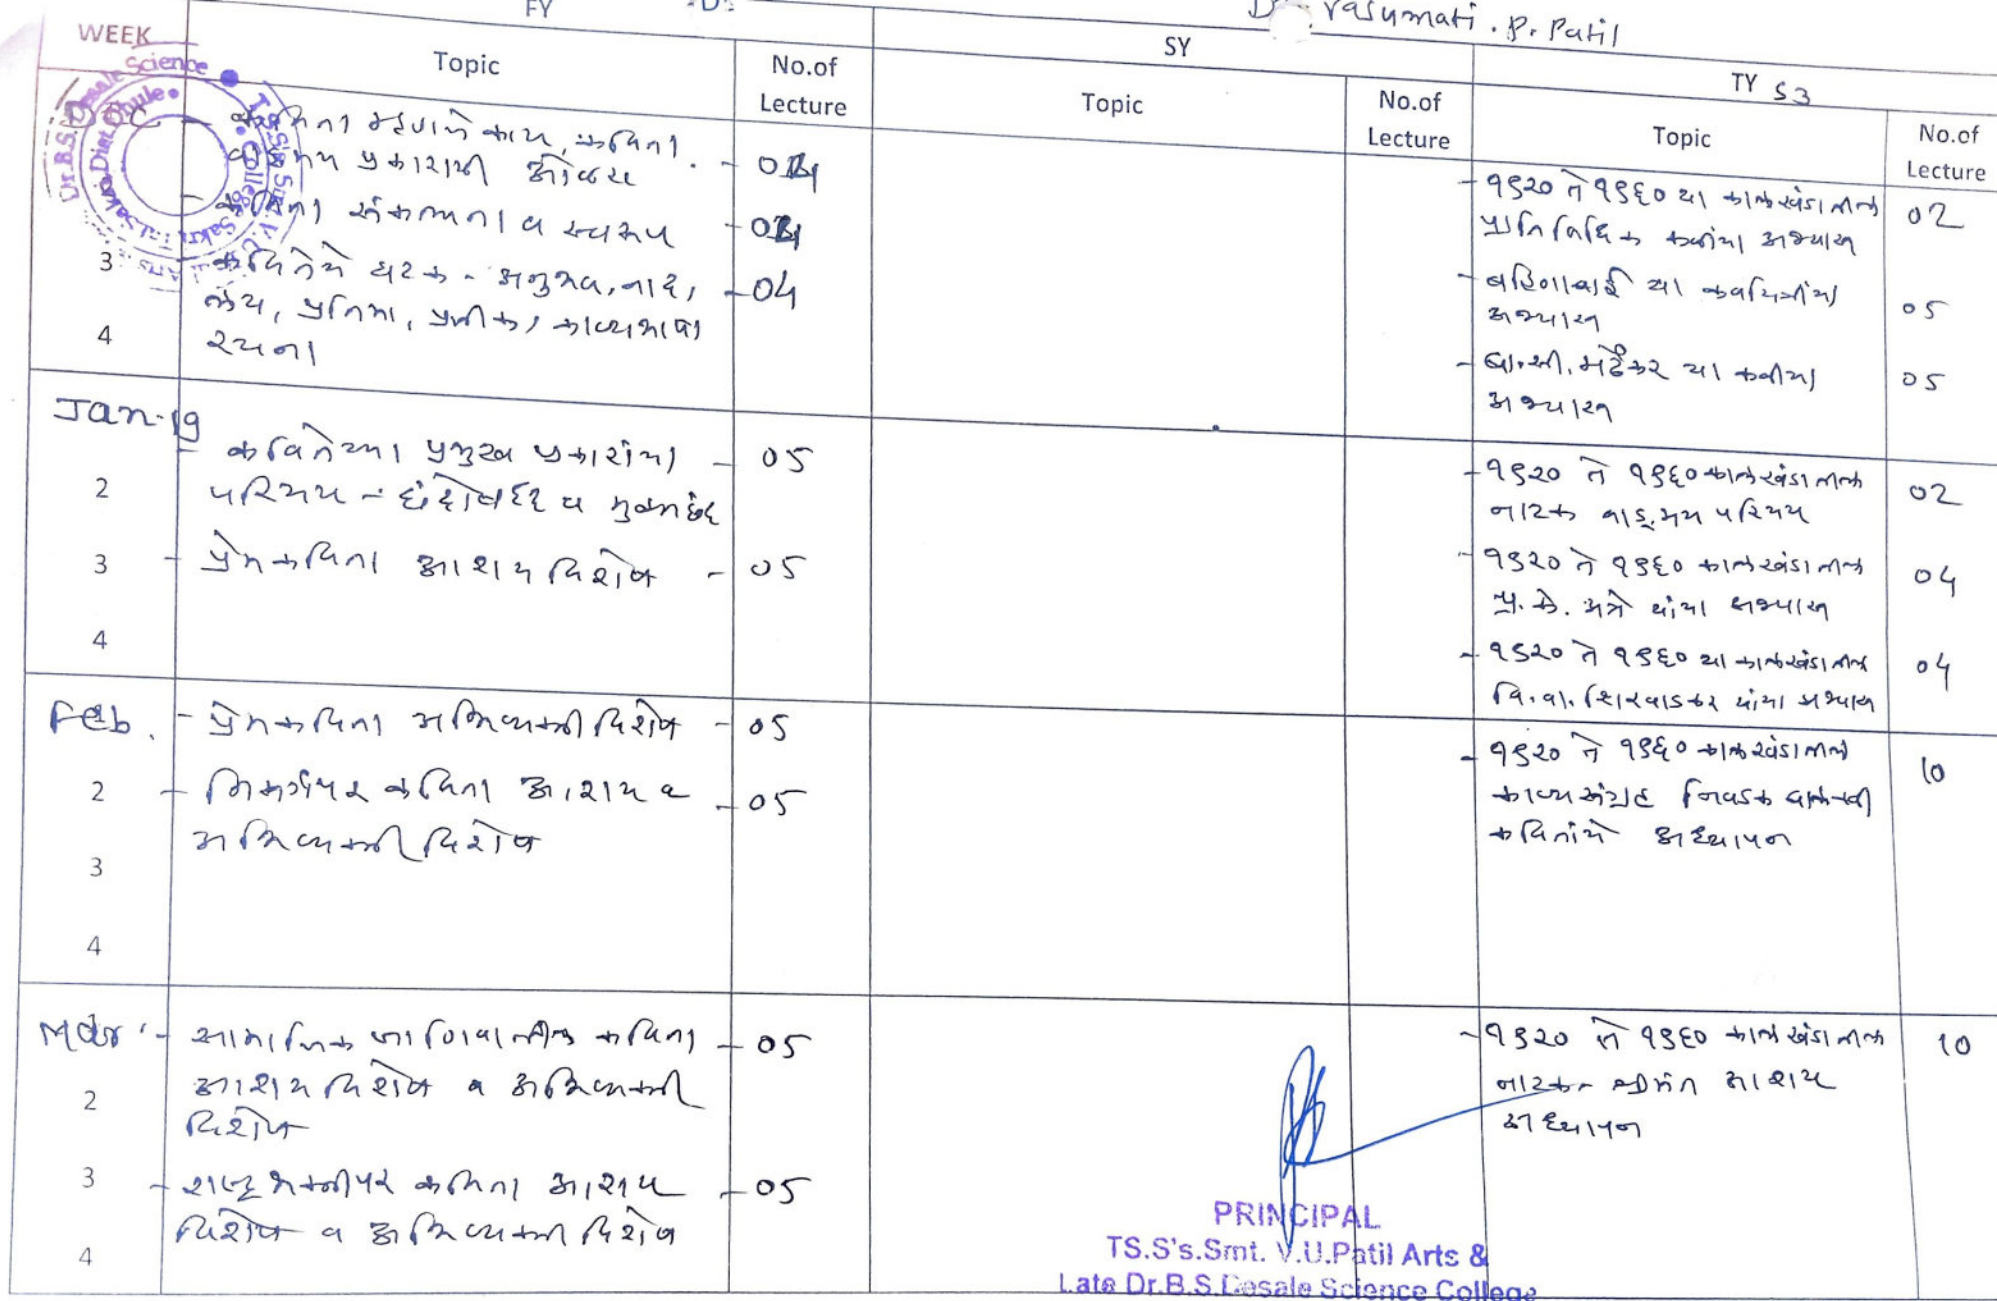 FY
Vasumati . P. Patil
WEEK
SY
TY S3
Topic
No.of
Lecture
Topic
No.of
Lecture
Topic
No.of
Lecture
म्हणजे काय, कविता
प्रकाराची ओळख
संकल्पना व स्वरूप
3
कवितेचे घटक - अनुभव, नाद, - 04
लय, प्रतिमा, प्रतीक, काव्यभाषा
4
रचना
- १९२० ते १९६० या कालखंडातील 02
प्रातिनिधिक कवींचा अभ्यास
- बहिणाबाई या कवयित्रींचा 05
अभ्यास
- बा.सी. मर्ढेकर या कवींचा 05
अभ्यास
Jan-19
- कवितेच्या प्रमुख प्रकारांचा - 05
2
परिचय - छंदोबद्ध व मुक्तछंद
3
- प्रेमकविता आशय विशेष - 05
4
- १९२० ते १९६० कालखंडातील 02
नाटक वाङ्मय परिचय
- १९२० ते १९६० कालखंडातील 04
प्र. के. अत्रे यांचा अभ्यास
- १९२० ते १९६० या कालखंडातील 04
वि. वा. शिरवाडकर यांचा अभ्यास
Feb.
- प्रेमकविता अभिव्यक्ती विशेष - 05
2
- निसर्गपर कविता आशय व - 05
अभिव्यक्ती विशेष
3
4
- १९२० ते १९६० कालखंडातील 10
काव्यसंग्रह निवडक
कवितांचे अध्यापन
Mar
- सामाजिक जाणिवातील कविता - 05
2
आशय विशेष व अभिव्यक्ती
विशेष
3
- राष्ट्रभक्तीपर कविता आशय - 05
विशेष व अभिव्यक्ती विशेष
4
- १९२० ते १९६० कालखंडातील 10
नाटक आशय
अध्यापन
PRINCIPAL
TS.S's.Smt. V.U.Patil Arts &
Late Dr.B.S.Desale Science College